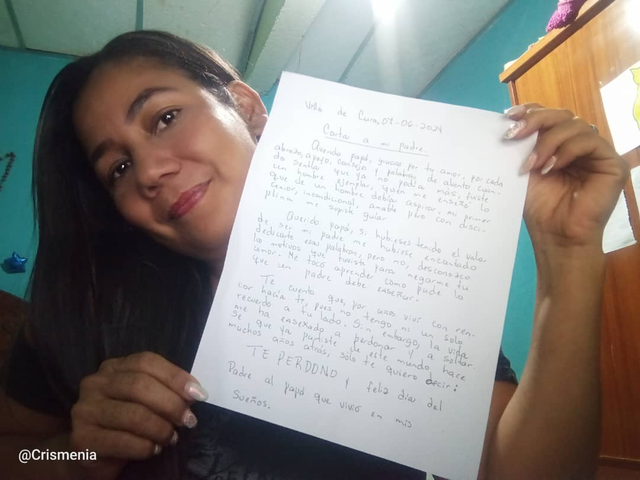 Villa de Cura, 07-06-2024
Carta a mi padre
Querido papá, gracias por tu amor, por cada
abrazo, apoyo, consejo y palabras de aliento cuan-
do sentía que ya no podía más, fuiste
un hombre ejemplar, quien me enseñó lo
que de un hombre debía aspirar, mi primer
amor, incondicional, amable pero con disci-
plina me supiste guiar.
Querido papá, si hubieses tenido el valor
de ser mi padre me hubiese encantado
dedicarte esas palabras, pero no, desconozco
lo motivos que tuviste para negarme tu
amor. Me tocó aprender como pude lo
que un padre debe enseñar.
Te cuento que, por años viví con ren-
cor hacia ti, pues no tengo ni un solo
recuerdo a tu lado. Sin embargo, la vida
me ha enseñado a perdonar y a soltar
Se que ya partiste de este mundo, hace
muchos años atrás, sólo te quiero decir:
TE PERDONO y feliz día del
Padre al papá que vivió en mis
sueños.
@Crismenia